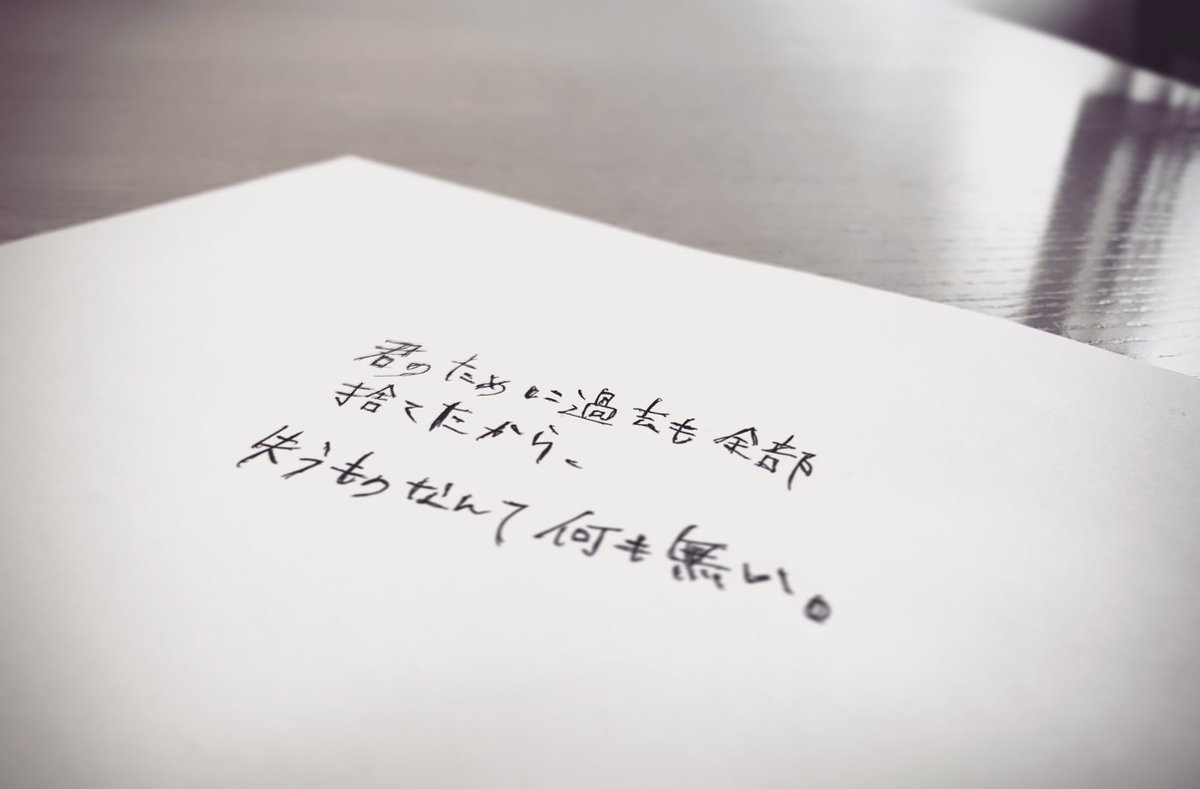 君のために過去も全部
捨てたから、
失うものなんて何も無い。